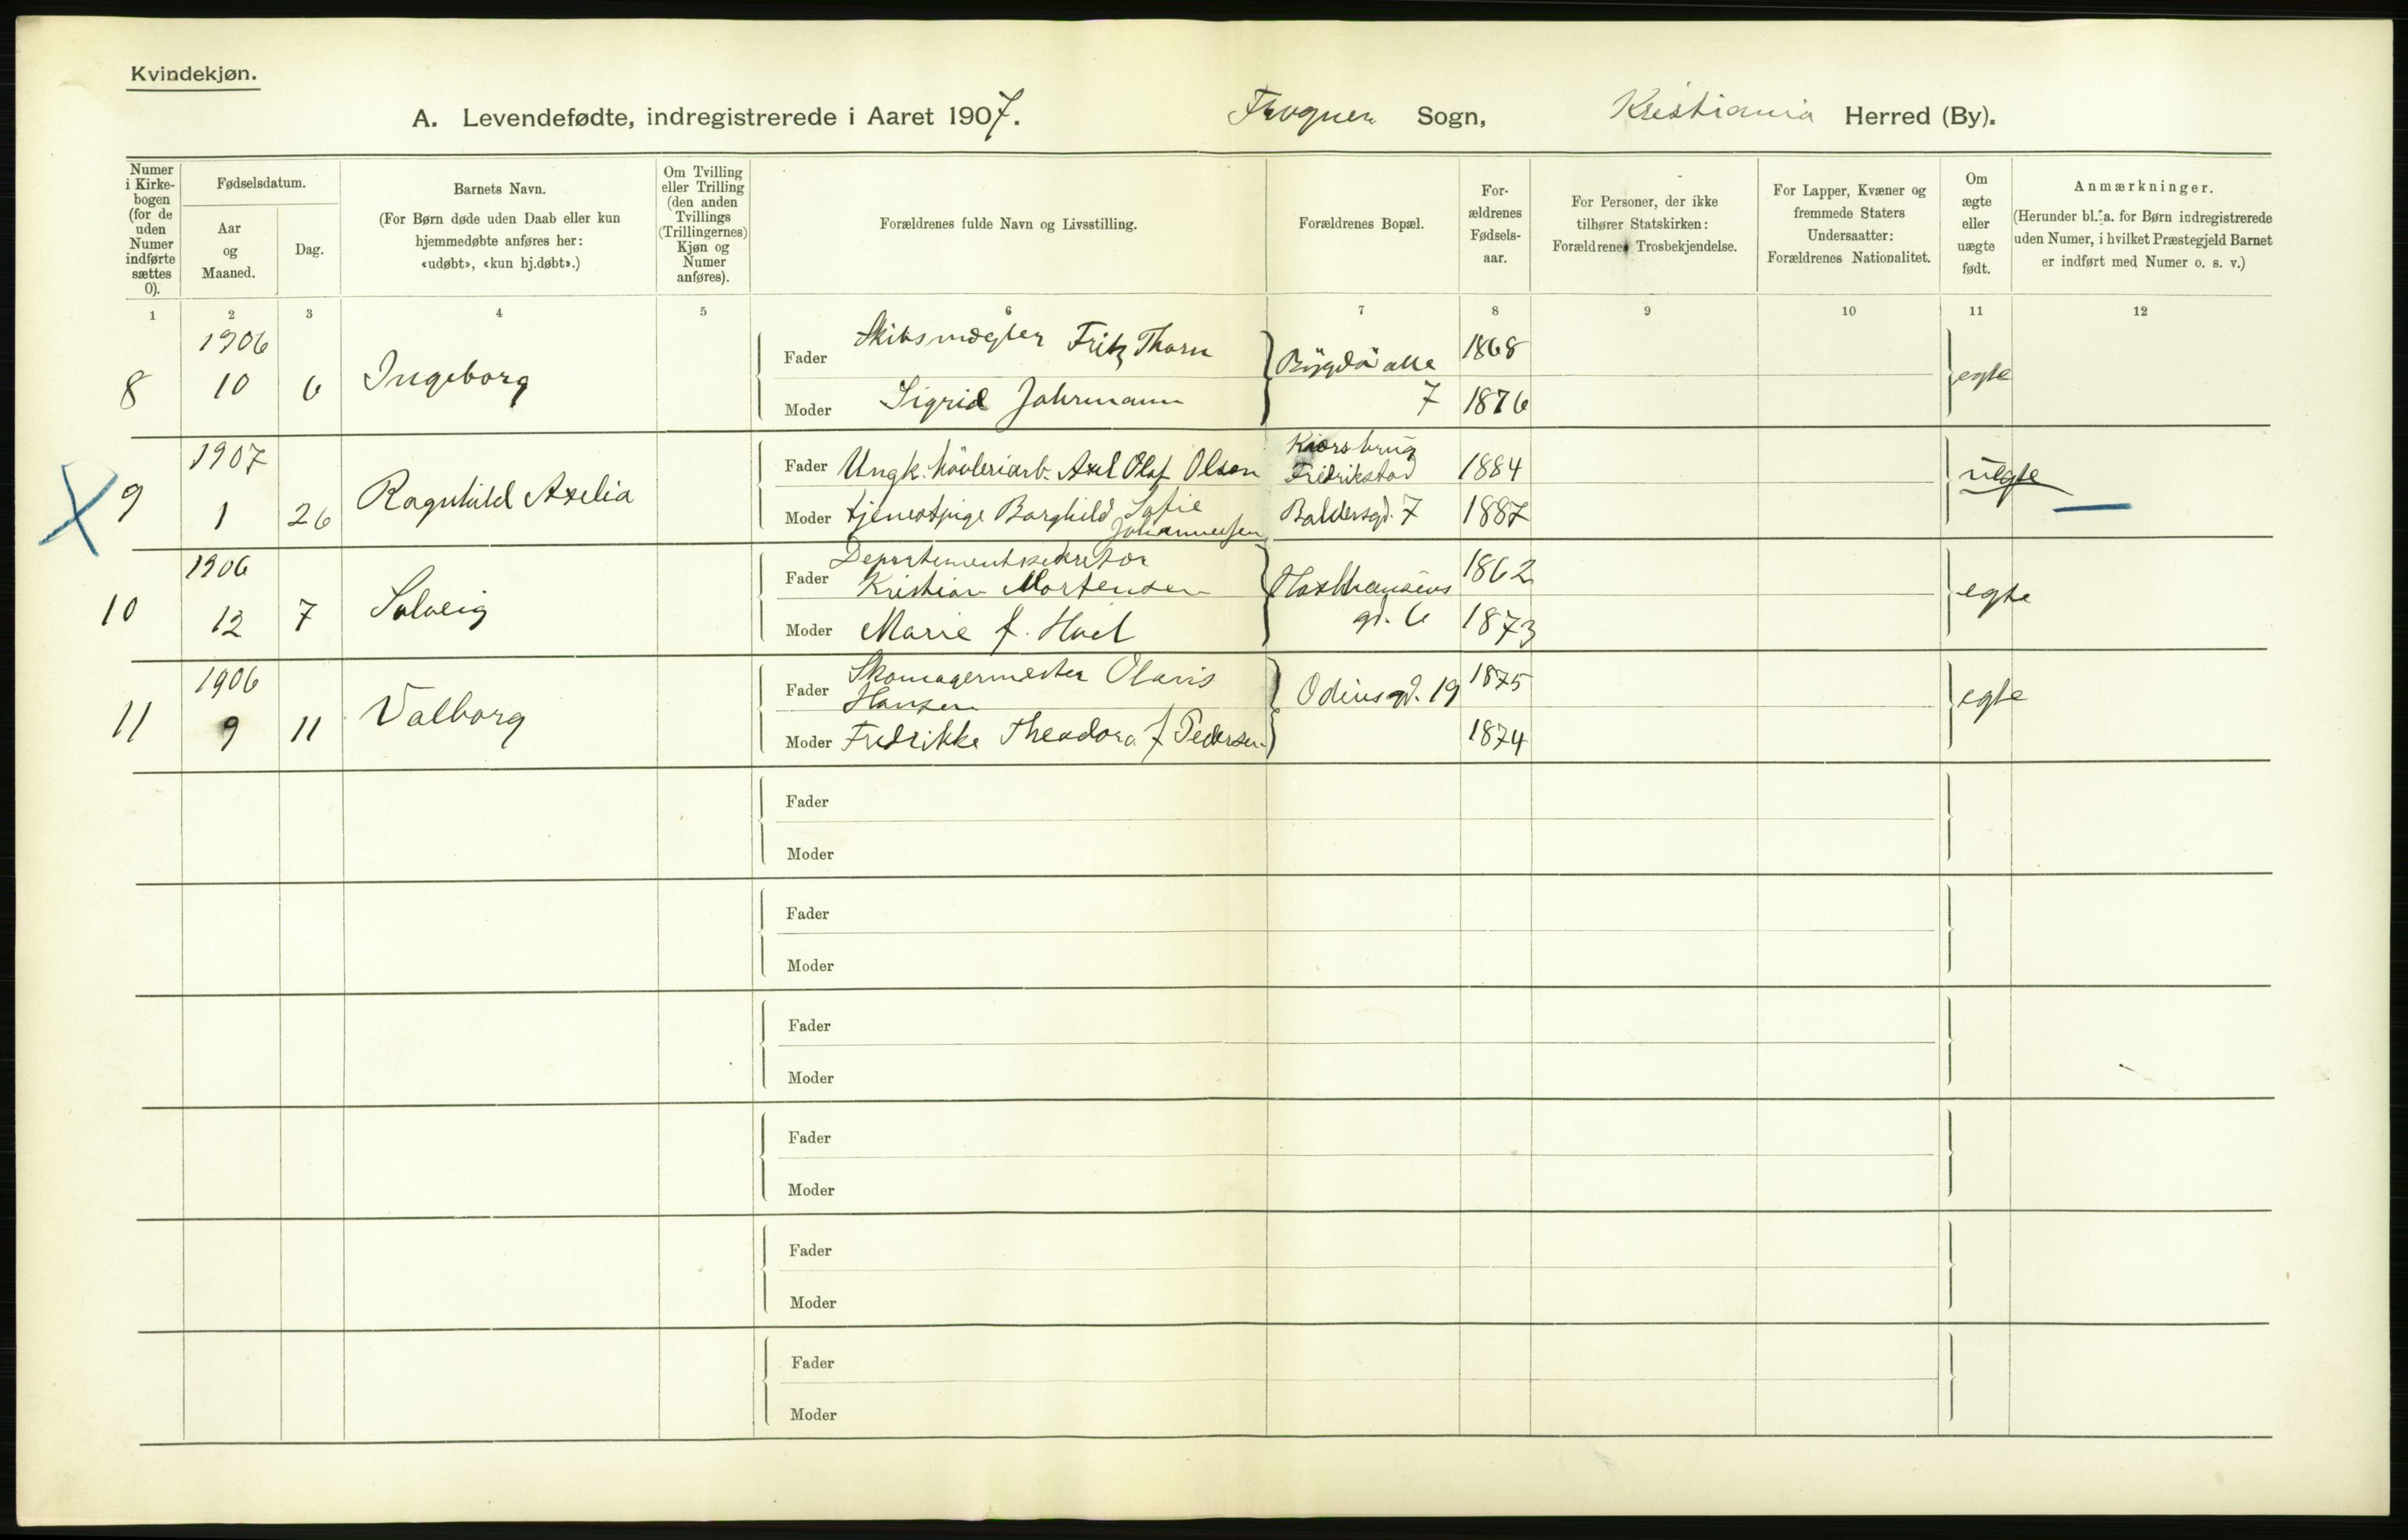 Kvindekjøn.
A. Levendefødte, indregistrerede i Aaret 1907. Frogner Sogn, Kristiania Herred (By).
Numer i Kirkebogen (for de uden Numer indførte sættes 0).
Fødselsdatum.
Aar og Maaned.
Dag.
Barnets Navn.
(For Børn døde uden Daab eller kun hjemmedøbte anføres her: «udøbt», «kun hj.døbt».)
Om Tvilling eller Trilling (den anden Tvillings (Trillingernes) Kjøn og Numer anføres).
Forældrenes fulde Navn og Livsstilling.
Forældrenes Bopæl.
Forældrenes Fødselsaar.
For Personer, der ikke tilhører Statskirken: Forældrenes Trosbekjendelse.
For Lapper, Kvæner og fremmede Staters Undersaatter: Forældrenes Nationalitet.
Om ægte eller uægte født.
Anmærkninger.
(Herunder bl. a. for Børn indregistrerede uden Numer, i hvilket Præstegjeld Barnet er indført med Numer o. s. v.)
1 2 3 4 5 6 7 8 9 10 11 12
8 1906 10 6 Ingeborg
Fader Skibsmægler Fritz Thorn Bygdö alle 1868 egte
Moder Sigrid Jahrmann 7 1876
9 1907 1 26 Ragnhild Axelia
Fader Ungk. høvleriarb. Axel Olaf Olsen Fridrikstad 1884 uegte
Moder tjenestpige Borghild Sofie Johannessen Baldersgd. 7 1887
10 1906 12 7 Solveig
Fader Departementsekretær Kristian Mortensen gd. 6 1862 egte
Moder Marie f. Hoel 1873
11 1906 9 11 Valborg
Fader Skomagermester Olavis Hansen Odinsgd. 19 1875 egte
Moder Fredrikke Theodora f Pedersen 1874
Fader
Moder
Fader
Moder
Fader
Moder
Fader
Moder
Fader
Moder
Fader
Moder